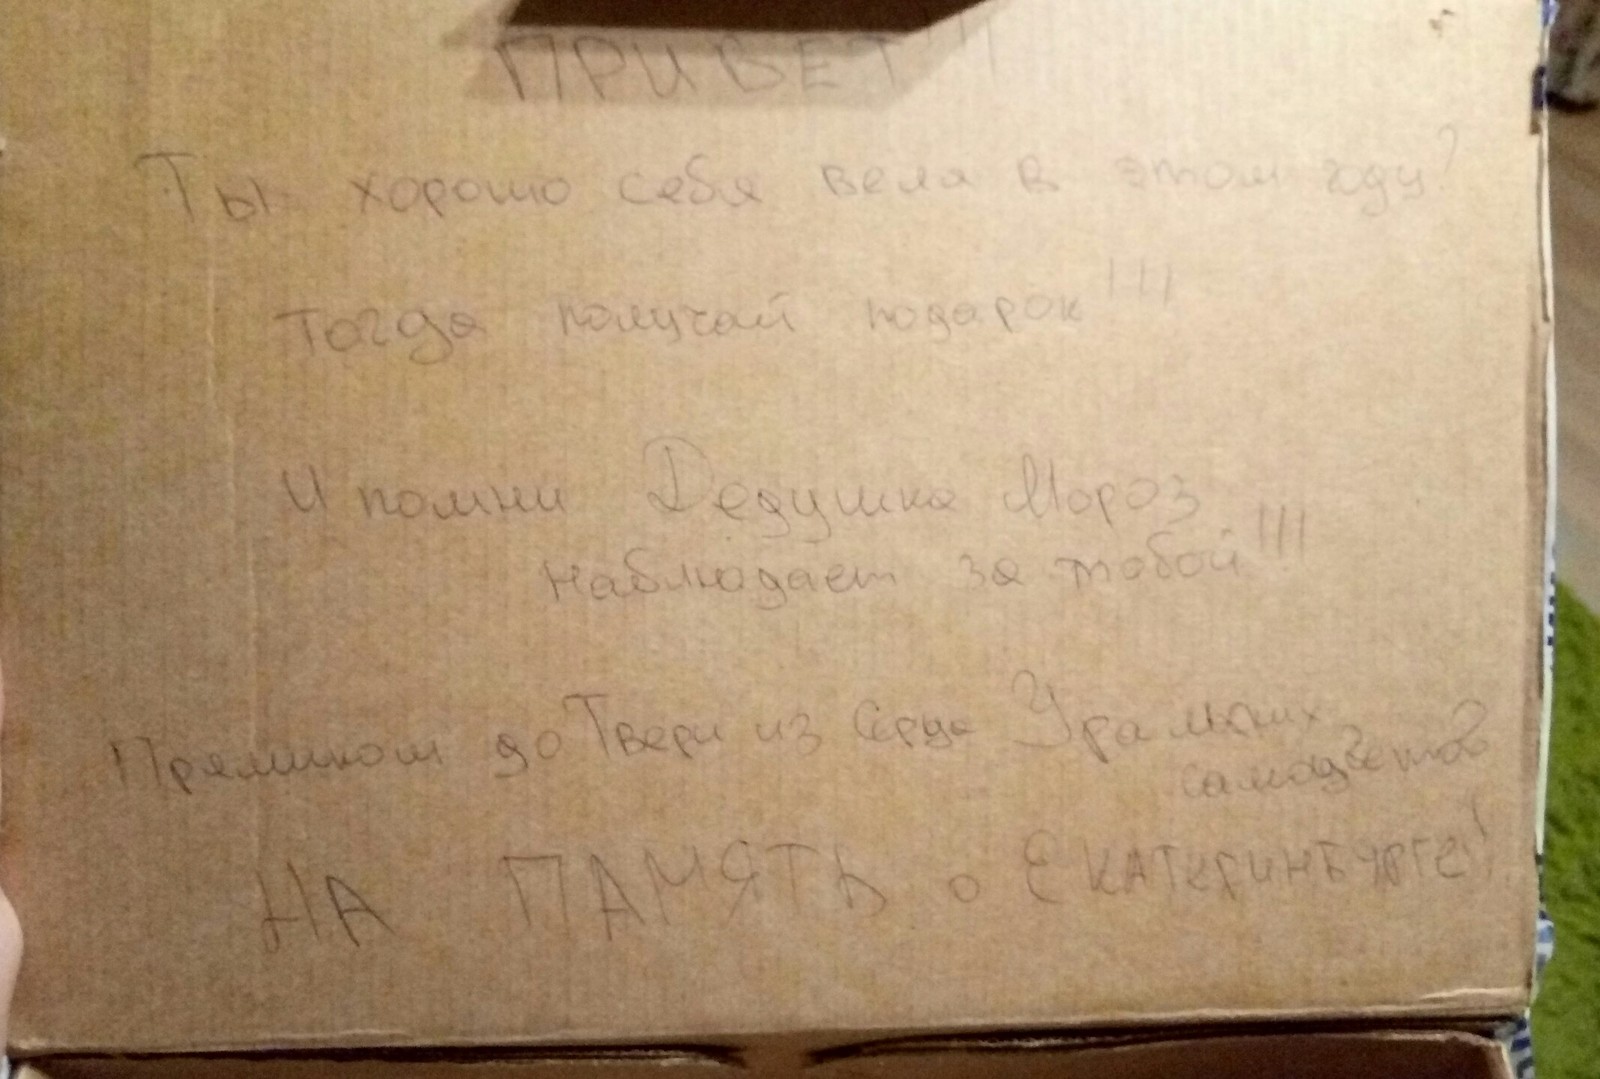 ПРИВЕТ!!
Ты хорошо себя вела в этом году?
Тогда получай подарок!!!
И помни Дедушка Мороз
наблюдает за тобой!!!
Прямиком до Твери из Серца Уральских
самоцветов
НА ПАМЯТЬ о ЕКАТЕРИНБУРГЕ!